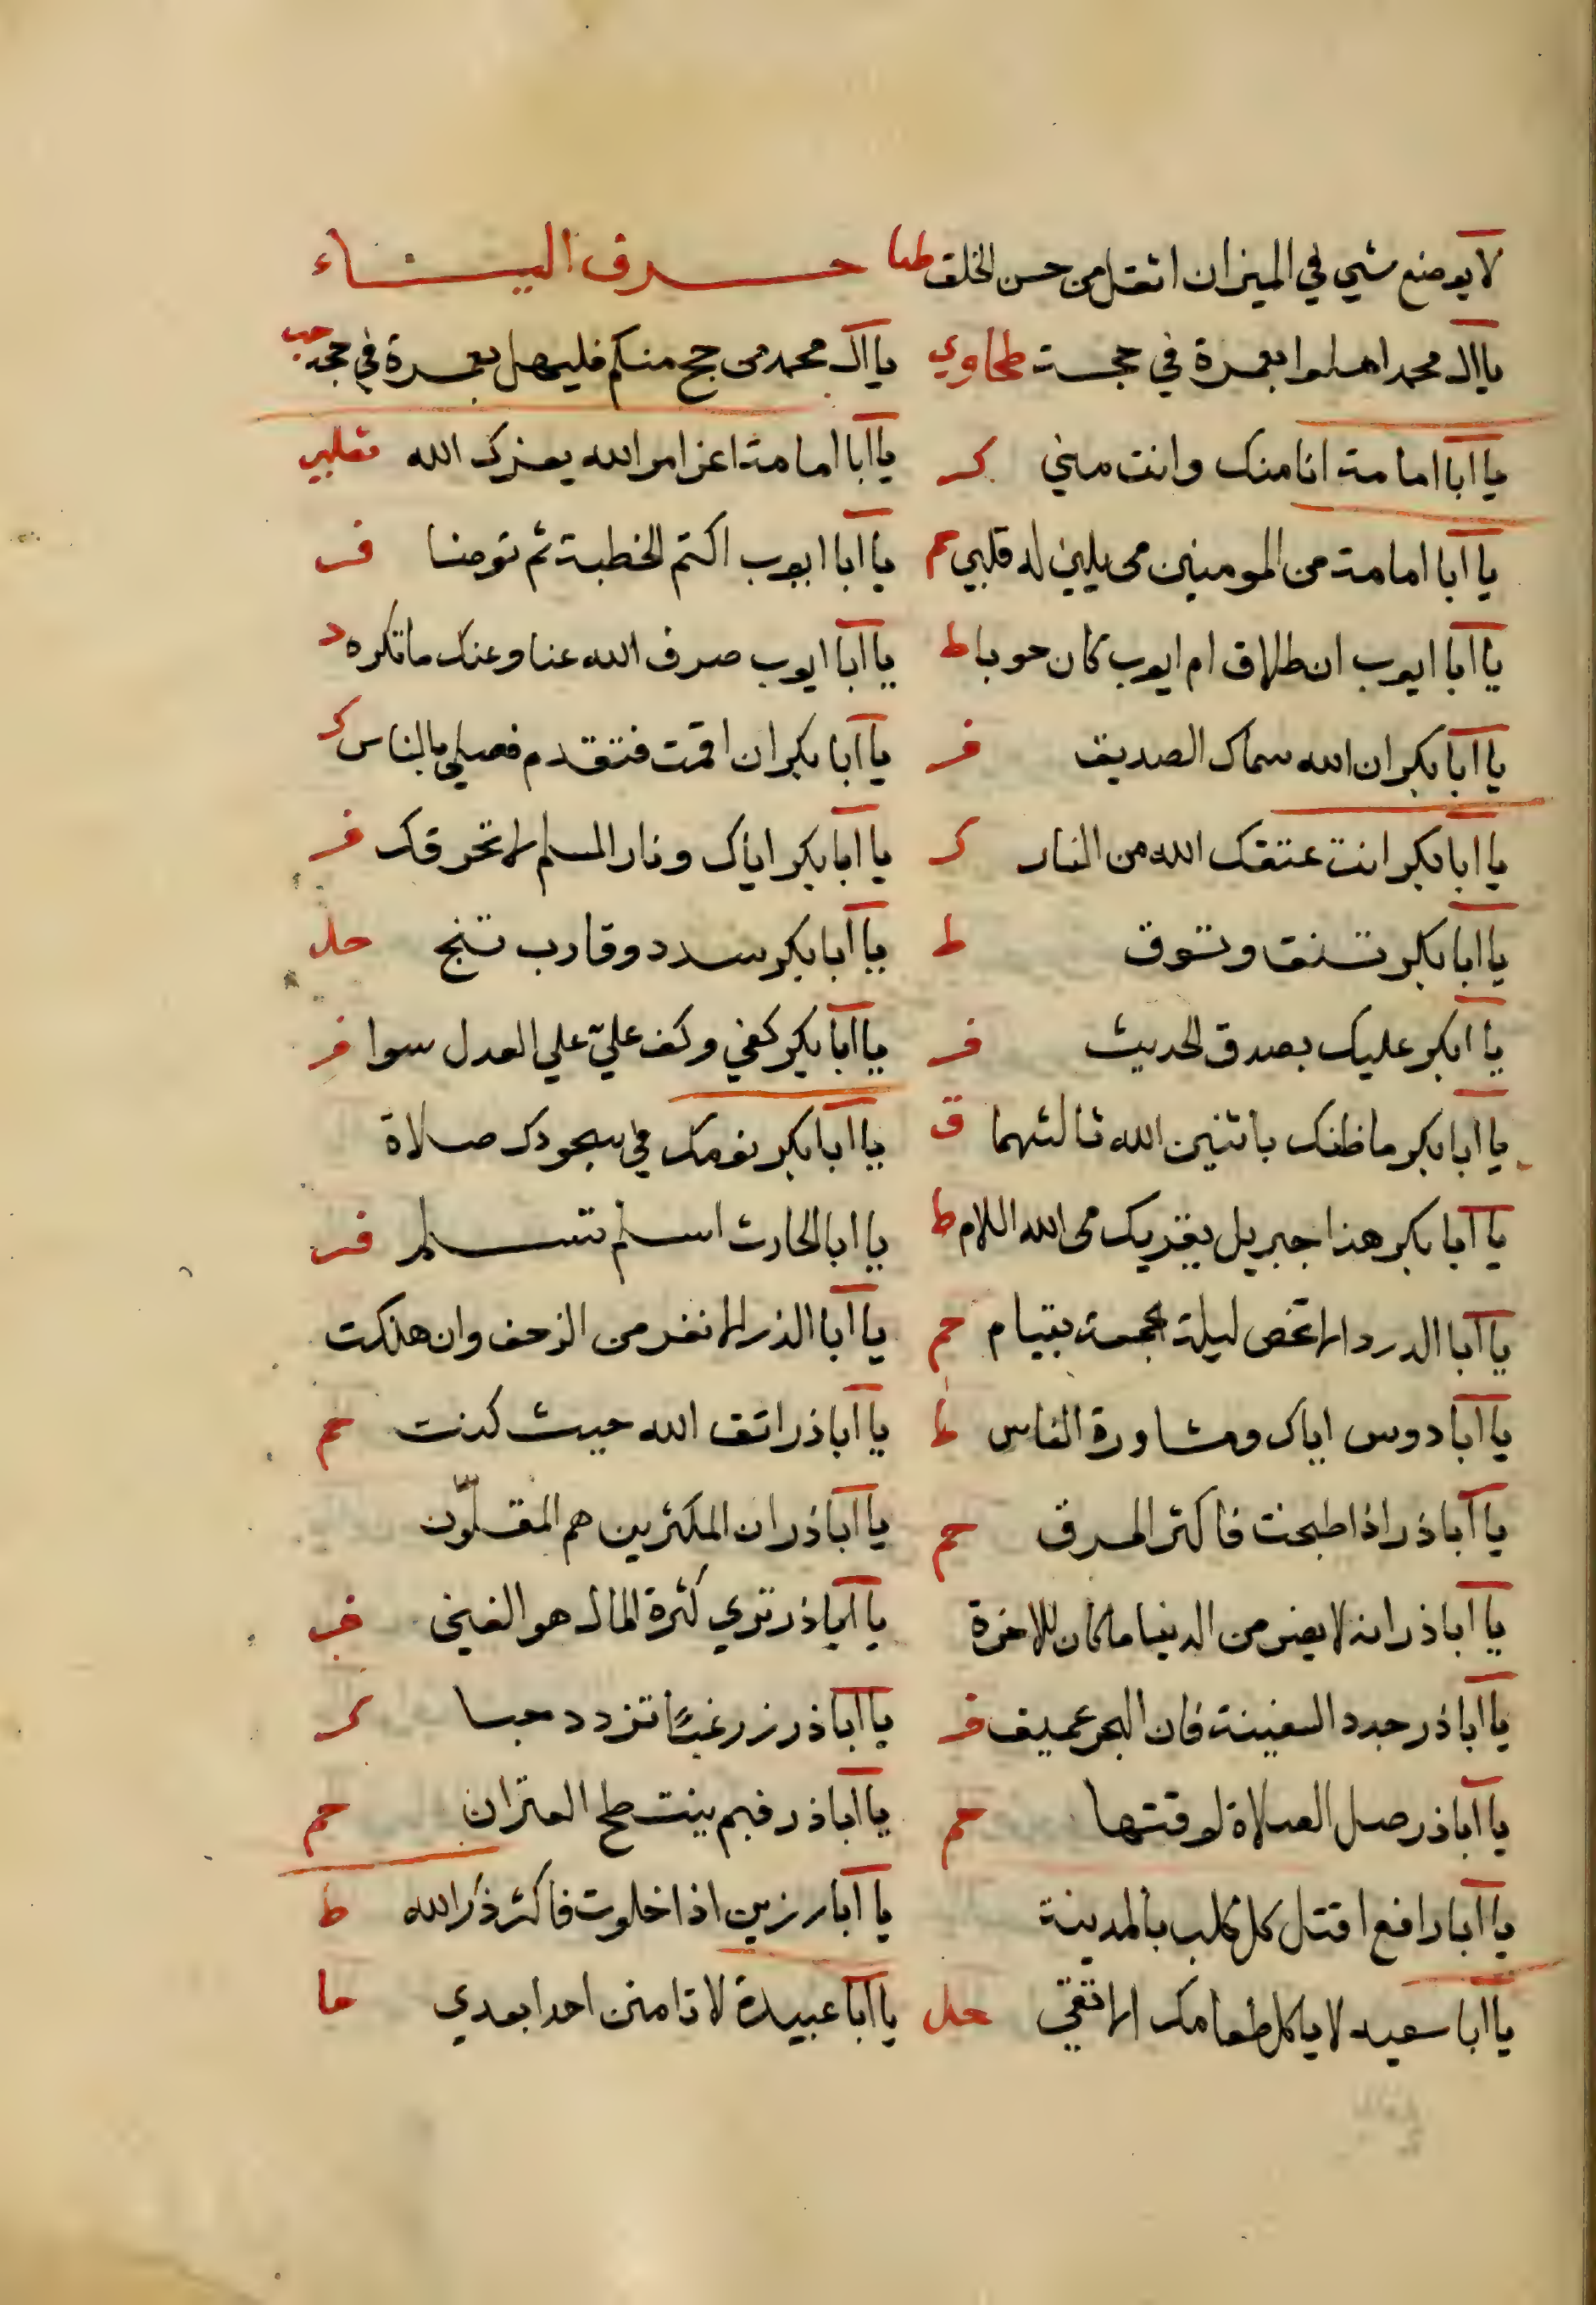 لا يوضع شي في الميزان اثقل من حسن الخلق طيا حرف الياء
يا ال محمد اهلوا بعمرة في حجة طحاوي يا ال محمد من حج منكم فليهل بعمرة في حجة حب
يا ابا امامة انا منك وانت مني كر يا ابا امامة اعز امر الله يعزك الله
يا ابا امامة من المومنين من يلين له قلبي حم يا ابا ايوب اكتم الخطبة ثم توضا فر
يا ابا ايوب ان طلاق ام ايوب كان حوبا ط يا ابا ايوب صرف الله عنا وعنك ما تكره د
يا ابا بكر ان الله سماك الصديق فر يا ابا بكر ان اقمت فتقدم فصلي بالناس ك
يا ابا بكر انت عتقك الله من النار ك يا ابا بكر اياك ونار المسلم لا تحرقك فر
يا ابا بكر تنق وتوق ط يا ابا بكر سدد وقارب تنج حل
يا ابكر عليك بصدق الحديث فر يا ابا بكر كفي وكف عليّ علي العدل سوا فر
يا ابا بكر ما ظنك باثنين الله ثالثهما ق يا ابا بكر نومك في سجودك صلاة
يا ابا بكر هذا جبريل يقريك من الله اللام ط يا ابا الحارث اسلم تسلم فر
يا ابا الدردا لا تخص ليلة الجمعة بقيام حم يا ابا الذر لا تفر من الزحف وان هلكت
يا ابا دوس اياك ومشاورة الناس ط يا ابا ذر اتق الله حيث كنت حم
يا ابا ذر اذا طبخت فاكثر المرق حم يا ابا ذر ان المكثرين هم المقلّون
يا ابا ذر انه لا يضر من الدنيا ما كان للاخرة يا ابا ذر تري كثرة المال هو الغنى
يا ابا ذر جدد السفينة فان البحر عميق فر يا ابا ذر زر غبًّا تزدد حبا ك
يا ابا ذر صل الصلاة لوقتها حم يا ابا ذر فيم ينتطح العنزان حم
يا ابا رافع اقتل كل كلب بالمدينة يا ابا رزين اذا خلوت فاكثر ذكر الله ط
يا ابا سعيد لا ياكل طعامك الا تقي حل يا ابا عبيدة لا تامنن احدا بعدي ما